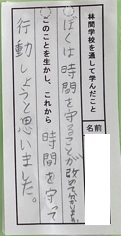 林間学校を通して学んだこと
名前
ぼくは時間を守ることが
改めて
このことを生かし、これから
時間を守って
行動しようと思いました。